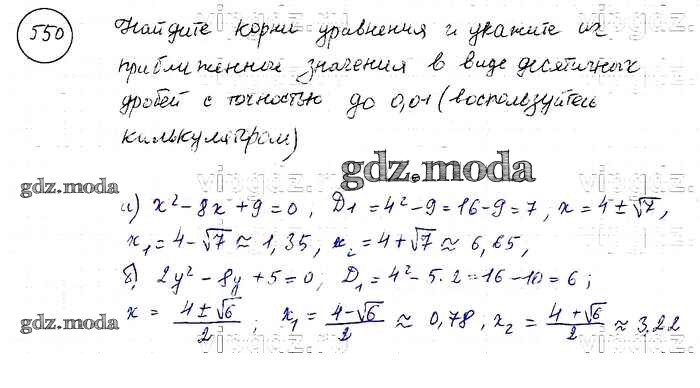 550
Найдите корни уравнения и укажите их
приближенные значения в виде десятичных
дробей с точностью до 0,01 (воспользуйтесь
калькулятором)
gdz.moda
gdz.moda
а) x² - 8x + 9 = 0; D₁ = 4² - 9 = 16 - 9 = 7, x = 4 ± √7,
x₁ = 4 - √7 ≈ 1,35, x₂ = 4 + √7 ≈ 6,65,
gdz.moda
б) 2y² - 8y + 5 = 0; D₁ = 4² - 5·2 = 16 - 10 = 6;
gdz.moda
x = (4 ± √6)/2; x₁ = (4 - √6)/2 ≈ 0,78, x₂ = (4 + √6)/2 ≈ 3,22